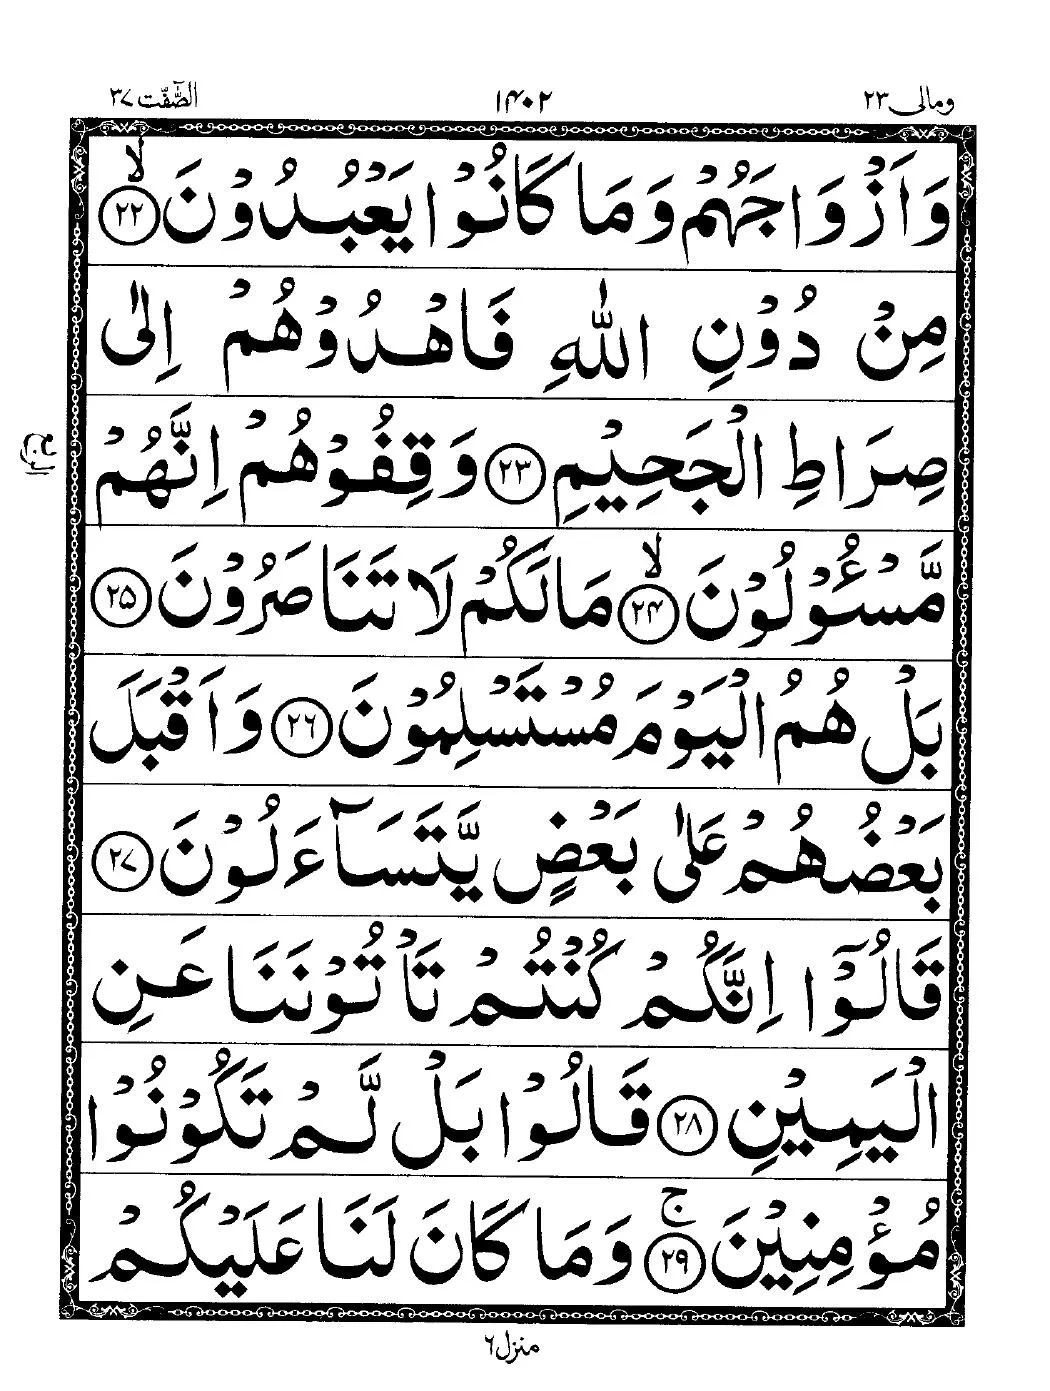 ومالی ٢٣
١٤٠٢
الصّٰٓفّٰت ٣٧
وَاَزْوَاجَهُمْ وَمَا كَانُوْا يَعْبُدُوْنَ ۙ﴿٢٢﴾
مِنْ دُوْنِ اللّٰهِ فَاهْدُوْهُمْ اِلٰى
صِرَاطِ الْجَحِيْمِ ﴿٢٣﴾ وَقِفُوْهُمْ اِنَّهُمْ
مَّسْـُٔوْلُوْنَ ۙ﴿٢٤﴾ مَا لَكُمْ لَا تَنَاصَرُوْنَ ﴿٢٥﴾
بَلْ هُمُ الْيَوْمَ مُسْتَسْلِمُوْنَ ﴿٢٦﴾ وَاَقْبَلَ
بَعْضُهُمْ عَلٰى بَعْضٍ يَّتَسَآءَلُوْنَ ﴿٢٧﴾
قَالُوْٓا اِنَّكُمْ كُنْتُمْ تَاْتُوْنَنَا عَنِ
الْيَمِيْنِ ﴿٢٨﴾ قَالُوْا بَلْ لَّمْ تَكُوْنُوْا
مُؤْمِنِيْنَ ۚ﴿٢٩﴾ وَمَا كَانَ لَنَا عَلَيْكُمْ
منزل ٦